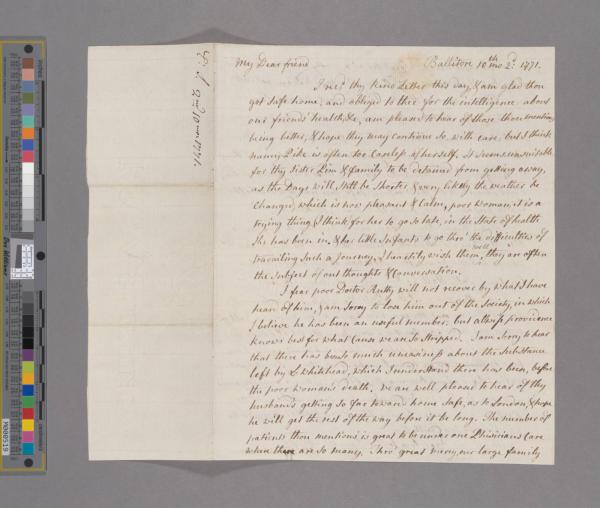 My Dear friend Ballitore 10th mo 2d: 1771.
I recd thy kind Letter this day, & am glad thou
got safe home, and obliged to thee for the intelligence about
our friends health, &c, am pleased to hear of those thou mentions
being better, & hope they may continue so with care, but I think
nancy Pike is often too Careless of herself. It seems unsuitable
for thy Sister Pim & family to be detained from getting away,
as the Days will still be Shorter, & very likely the weather be
changed which is now pleasant & Calm, poor woman, it is a
trying thing I think for her to go so late, in the State of health
She has been in, & her little Infants to go thro' the difficulties of
travailing Such a Journey, I heartily wish them well, they are often
the subject of our thoughts & Conversation.
I fear poor Doctor Rutty will not recover by what I have
heard of him, & am Sorry to lose him out of the Society, in which
I believe he has been an useful member, but allwise providence
knows best for what cause we are So Stripped. I am Sorry to hear
that there has been So much uneasiness about the Substance
left by L Whitehead, which I understand there has been, before
the poor womans death. We are well pleased to hear of thy
husbands getting So far toward home Safe, as to London, & hope
he will get the rest of the way before it be long. The number of
patients thou mentions is great to be under one Phisicians Care
when there are So many. Thro' great mercy, our large family
M000519